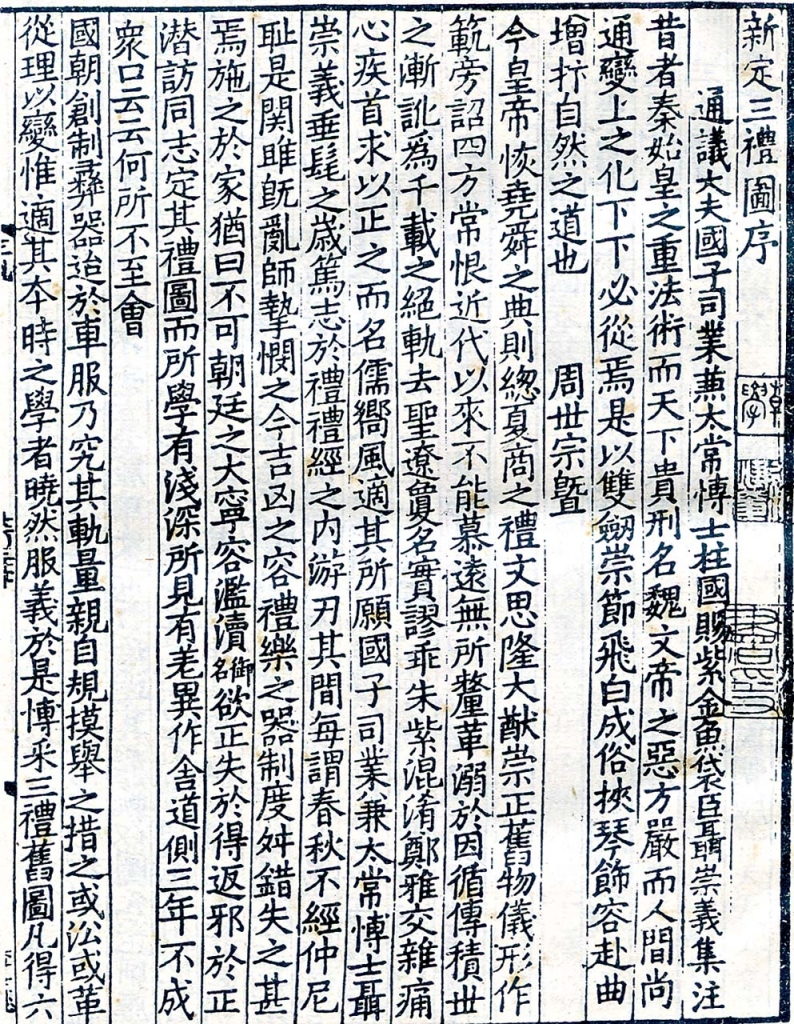 新定三禮圖序
通議大夫國子司業兼太常博士柱國賜紫金魚袋臣聶崇義集注
昔者秦始皇之重法術而天下貴刑名魏文帝之惡方嚴而人間尚
通變上之化下下必從焉是以雙劒崇節飛白成俗挾琴飾容赴曲
增抃自然之道也 周世宗曁
今皇帝恢堯舜之典則緫夏商之禮文思隆大猷崇正舊物儀形作
範旁詔四方常恨近代以來不能慕遠無所釐革溺於因循傳積世
之漸訛爲千載之絕軌去聖遼敻名實謬乖朱紫混淆鄭雅交雜痛
心疾首求以正之而名儒嚮風適其所願國子司業兼太常博士聶
崇義垂髦之歲篤志於禮禮經之内游刃其間每謂春秋不經仲尼
耻是関雎旣亂師摯憫之今吉凶之容禮樂之器制度舛錯失之甚
焉施之於家猶曰不可朝廷之大寧容濫瀆御名欲正失於得返邪於正
潜訪同志定其禮圖而所學有淺深所見有差異作舎道側三年不成
衆口云云何所不至會
國朝創制彝器迨於車服乃究其軌量親自規摸舉之措之或㳂或革
從理以變惟適其本時之學者曉然服義於是博采三禮舊圖凡得六